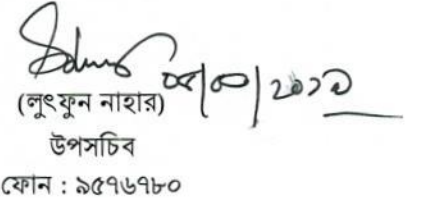 ০৫/০০/২০১৯
(লুৎফুন নাহার)
উপসচিব
ফোন : ৯৫৭৬৭৮০